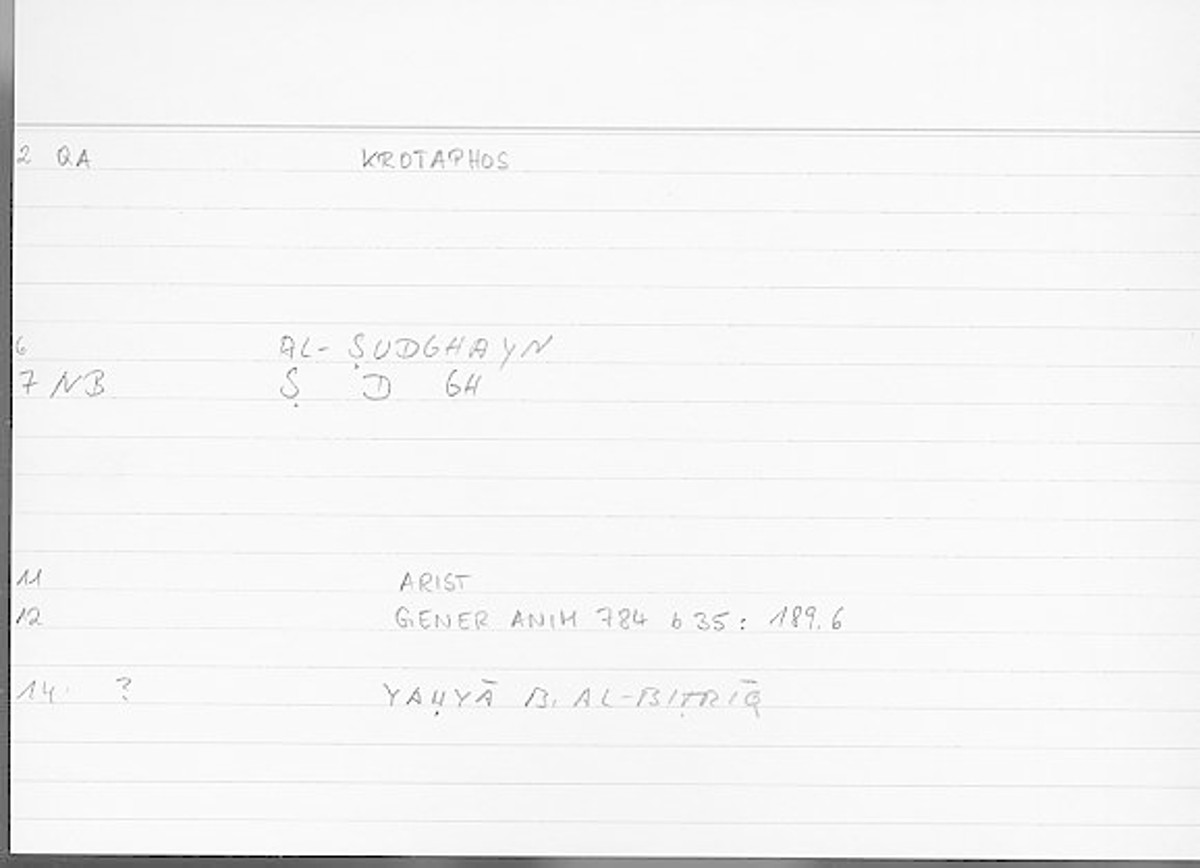 2 QA KROTAPHOS
6 AL-ṢUDGHAYN
7 NB Ṣ D GH
11 ARIST
12 GENER ANIM 784 b 35: 189.6
14 ? YAḤYĀ B. AL-BIṬRĪQ